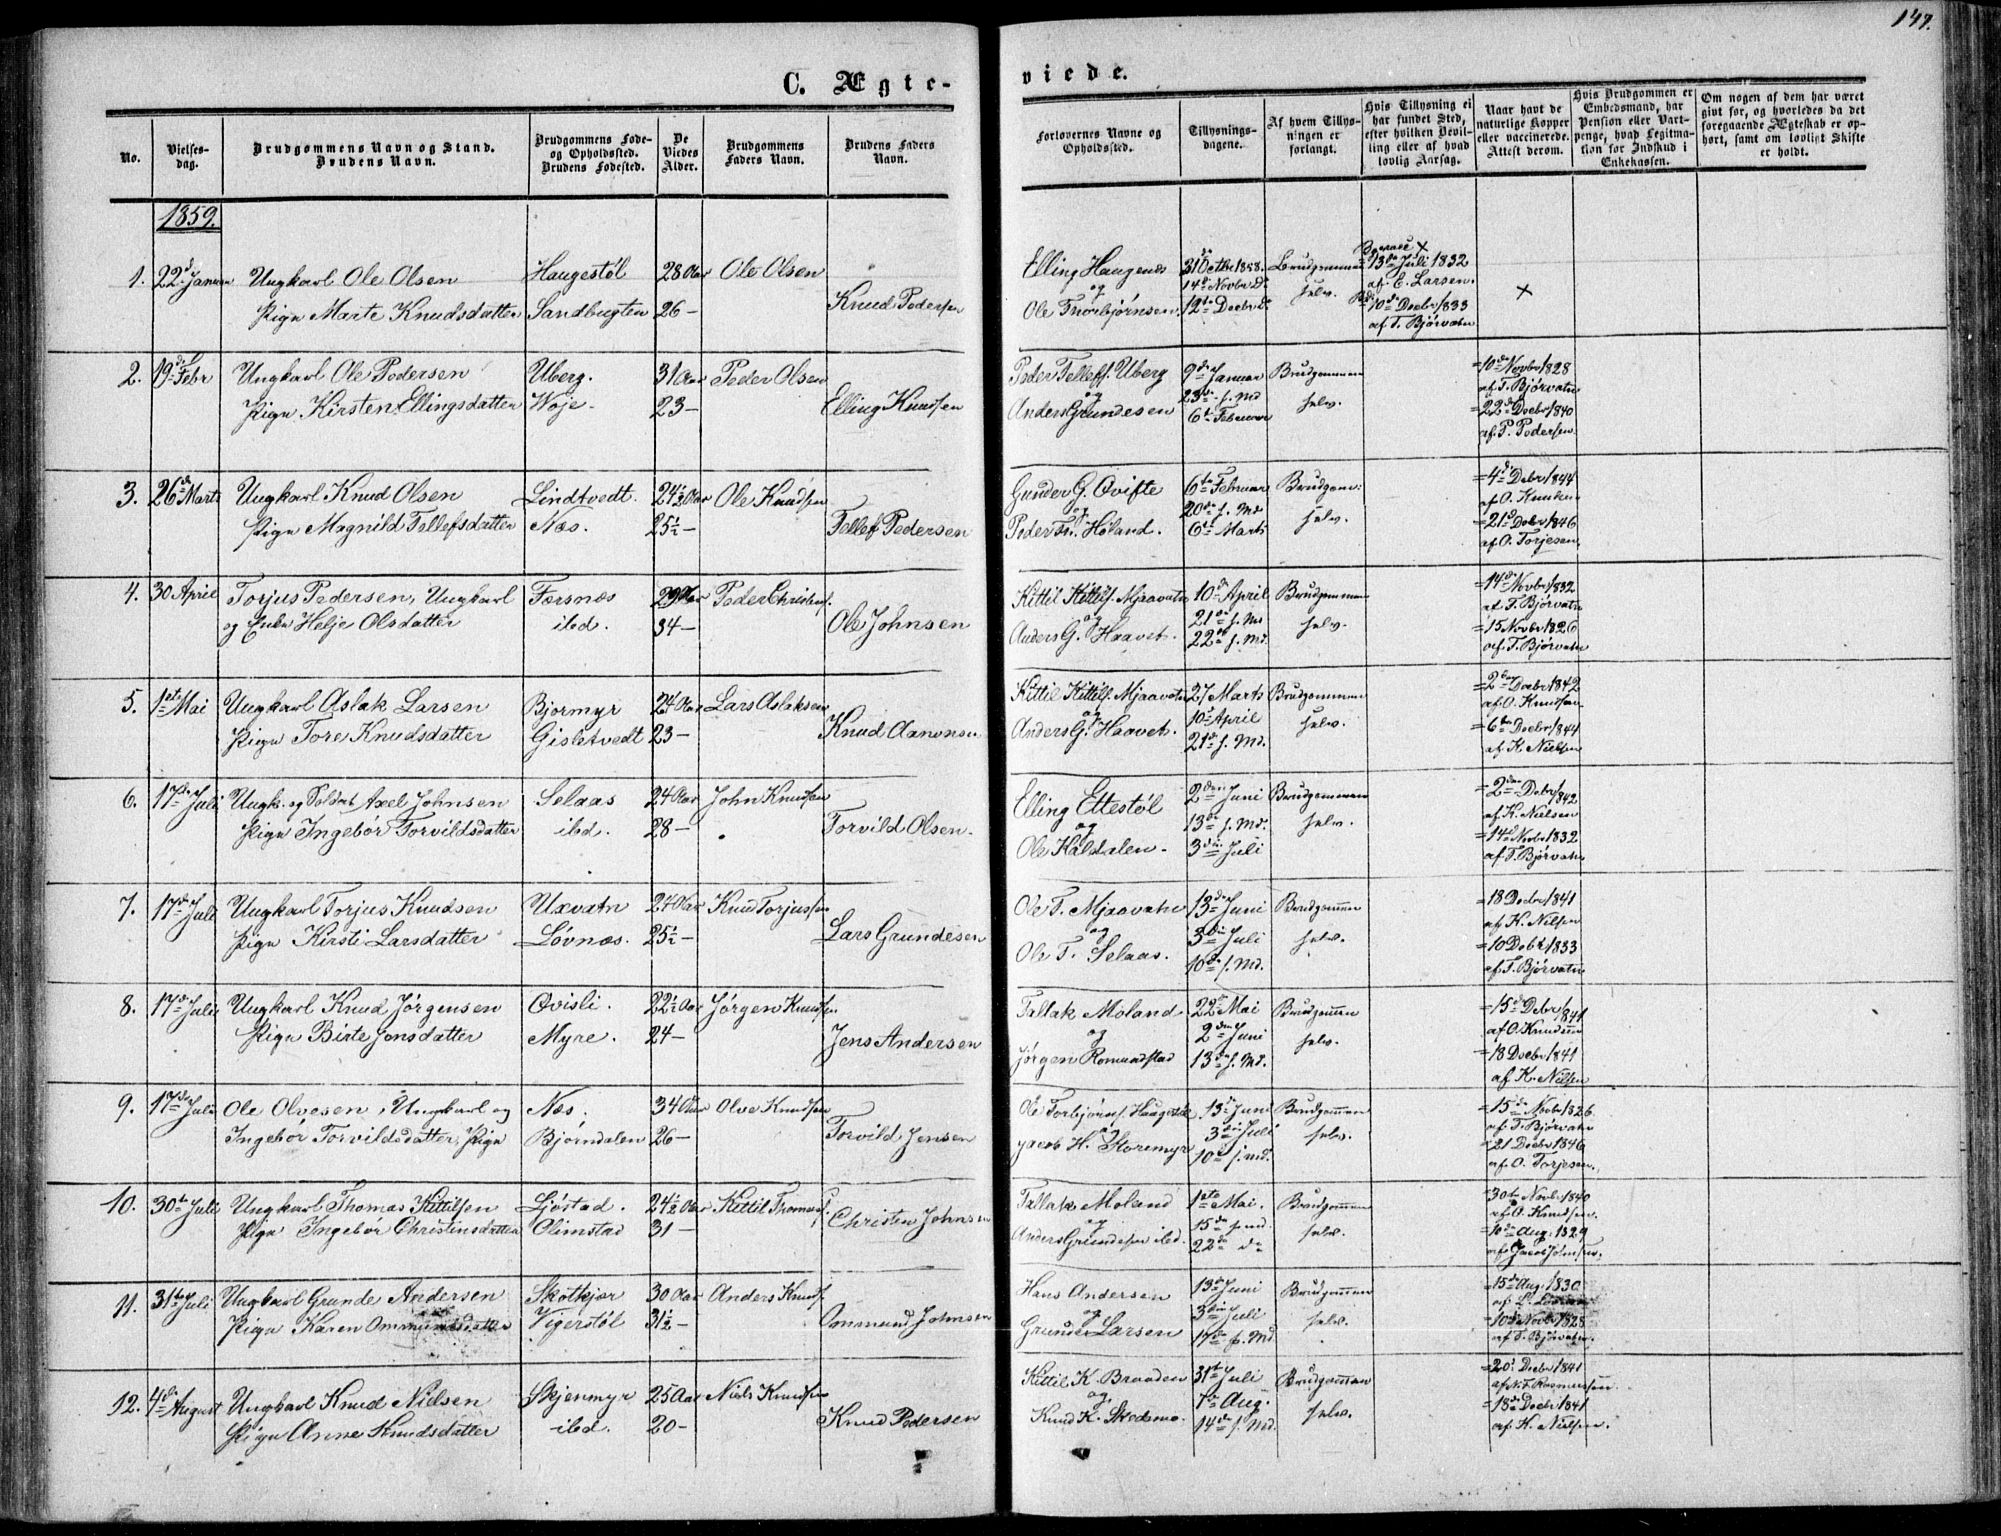 147.
C. Ægte-
viede.
No.
Vielses-
dag.
Brudgommens Navn og Stand.
Brudens Navn.
Brudgommens Føde-
og Opholdssted.
Brudens Fødested.
De
Viedes
Alder.
Brudgommens
Faders Navn.
Brudens Faders
Navn.
Forlovernes Navne og
Opholdssted.
Tillysnings-
dagene.
Af hvem Tillys-
ningen er
forlangt.
Hvis Tillysning ei
har fundet Sted,
efter hvilken Bevil-
ling eller af hvad
lovlig Aarsag.
Naar havt de
naturlige Kopper
eller vaccinerede.
Attest derom.
Hvis Brudgommen er
Embedsmand, har
Pension eller Vart-
penge, hvad Legitma-
tion for Indskud i
Enkekassen.
Om nogen af dem har været
givt før, og hvorledes da det
foregaaende Ægteskab er op-
hørt, samt om lovligt Skifte
er holdt.
1859.
1. 22d Januar Ungkarl Ole Olsen Haugestøl 28 Aar Ole Olsen
Pige Marte Knudsdatter Sandbugten 26 — Knud Pedersen
Elling Haugenes 31 Octbr 1858. Brudgommen 13de Juli 1832
og 14de Novbr do selv. af E. Larsen.
Ole Thorbjørnsen. 12te Decbr do 10de Decbr 1833
af T. Bjørvatn
2. 19de Febr Ungkarl Ole Pedersen Uberg. 31 Aar Peder Olsen
Pige Kirsten Ellingsdatter Woje. 23 — Elling Knudsen
Peder Tellefs. Uberg 9de Januar Brudgommen = 10de Novbr 1828
og 23de s. Md selv. af T. Bjørvatn
Anders Grundesen 6te Februar = 22de Decbr 1840
af P. Pedersen.
3. 26de Marts Ungkarl Knud Olsen Lindtvedt. 24½ Aar Ole Knudsen
Pige Magnild Tellefsdatter Næs. 25½ — Tellef Pedersen
Gunder G. Ovifte 6te Februar Brudgom: = 4de Debr 1844
og 20de s. Md selv. af O. Knudsen
Peder Tr. Høland. 6te Marts = 21de Debr 1846
af O. Torjesen.
4. 30 April Torjus Pedersen, Ungkarl Førsnæs 29 Aar Peder Christens.
og Enke Helje Olsdatter ibd. 34 — Ole Johnsen
Kittil Kittils. Mjaavatn 10de April Brudgommen = 14de Novbr 1832
og 21de s. Md selv. af T. Bjørvatn
Anders G. Haavet. 22de s. Md. = 15 Novbr 1826
af T. Bjørvatn
5. 1ste Mai Ungkarl Aslak Larsen Bjormyr 24 Aar Lars Aslaksen
Pige Tore Knudsdatter Gisletvedt 23 — Knud Aanonsen
Kittil Kittils. Mjaavatn 27 Marts Brudgommen = 2den Decbr 1842
og 10de April selv. af O. Knudsen
Anders G. Haavet. 21de s. Md. = 6te Decbr 1844
af K. Nielsen
6. 17de Juli Ungk. og Soldat Axel Johnsen Selaas 24 Aar John Knudsen
Pige Ingebør Torvildsdatter ibd. 28 — Torvild Olsen.
Elling Ettestøl 2den Juni Brudgommen = 2den Debr 1842
og 13de s. Md. selv. af K. Nielsen
Ole Haldalen. 3die Juli = 14de Novbr 1832
af T. Bjørvatn
7. 17de Juli Ungkarl Torjus Knudsen Uxvatn 24 Aar Knud Torjussen
Pige Kirsti Larsdatter Løvnæs. 25½ — Lars Grundesen
Ole T. Mjaavatn 13de Juni Brudgommen = 18 Decbr 1841
og 3die Juli selv. af K. Nielsen
Ole T. Selaas. 10de s. Md. = 10 Debr 1833
af T. Bjørvatn
8. 17de Juli Ungkarl Knud Jørgensen Ovisli. 22½ Aar Jørgen Knudsen
Pige Birte Jensdatter Myre. 24 — Jens Andersen
Tallak Moland 22de Mai Brudgommen = 15de Debr 1841
og 2den Juni selv. af O. Knudsen
Jørgen Romundstad 13de s. Md. = 18 Decbr 1841
af K. Nielsen
9. 17de Juli Ole Olvesen, Ungkarl og Næs. 34 Aar Olve Knudsen
Ingebør Torvildsdatter, Pige Bjørndalen 26 — Torvild Jensen
Ole Torbjørns. Haugestøl 13de Juni Brudgommen = 15de Novbr 1826.
og 3die Juli selv. af T. Bjørvatn
Jacob H. Storemyr 10de s. md. = 21 Decbr 1846
af O. Torjesen.
10. 30te Juli Ungkarl Thomas Kittilsen Ljøstad. 24½ Aar Kittil Thomas.
Pige Ingebør Christinsdatter Olimstad 31 — Christen Johnsen
Tallak Moland 1ste Mai. Brudgommen = 30te Novbr 1840
og 15de s. md. selv. af O. Knudsen.
Anders Grundesen ibd. 22de do = 10de Aug: 1829
af Jacob Johnsen.
11. 31te Juli Ungkarl Grunde Andersen Skotkjær 30 Aar Anders Knuds.
Pige Karen Ommundsdatter Vigerstøl 31½ — Ommund Johnsen
Hans Andersen 13de Juni Brudgommen = 15de Aug: 1830
og 3die Juli selv.
Grunde Larsen 17de s. Md. = 10de Novbr 1828
af T. Bjørvatn.
12. 4de August Ungkarl Knud Nielsen Skjenmyr 25 Aar Niels Knudsen
Pige Anne Knudsdatter ibd. 20 — Knud Pedersen
Kittil K. Braaden 31te Juli Brudgommen = 20de Decbr 1841
og 7de Aug. selv. af N. T. Rasmussen
Knud K. Skodsmo. 14de s. Md. = 18de Decbr 1841
af K. Nielsen.